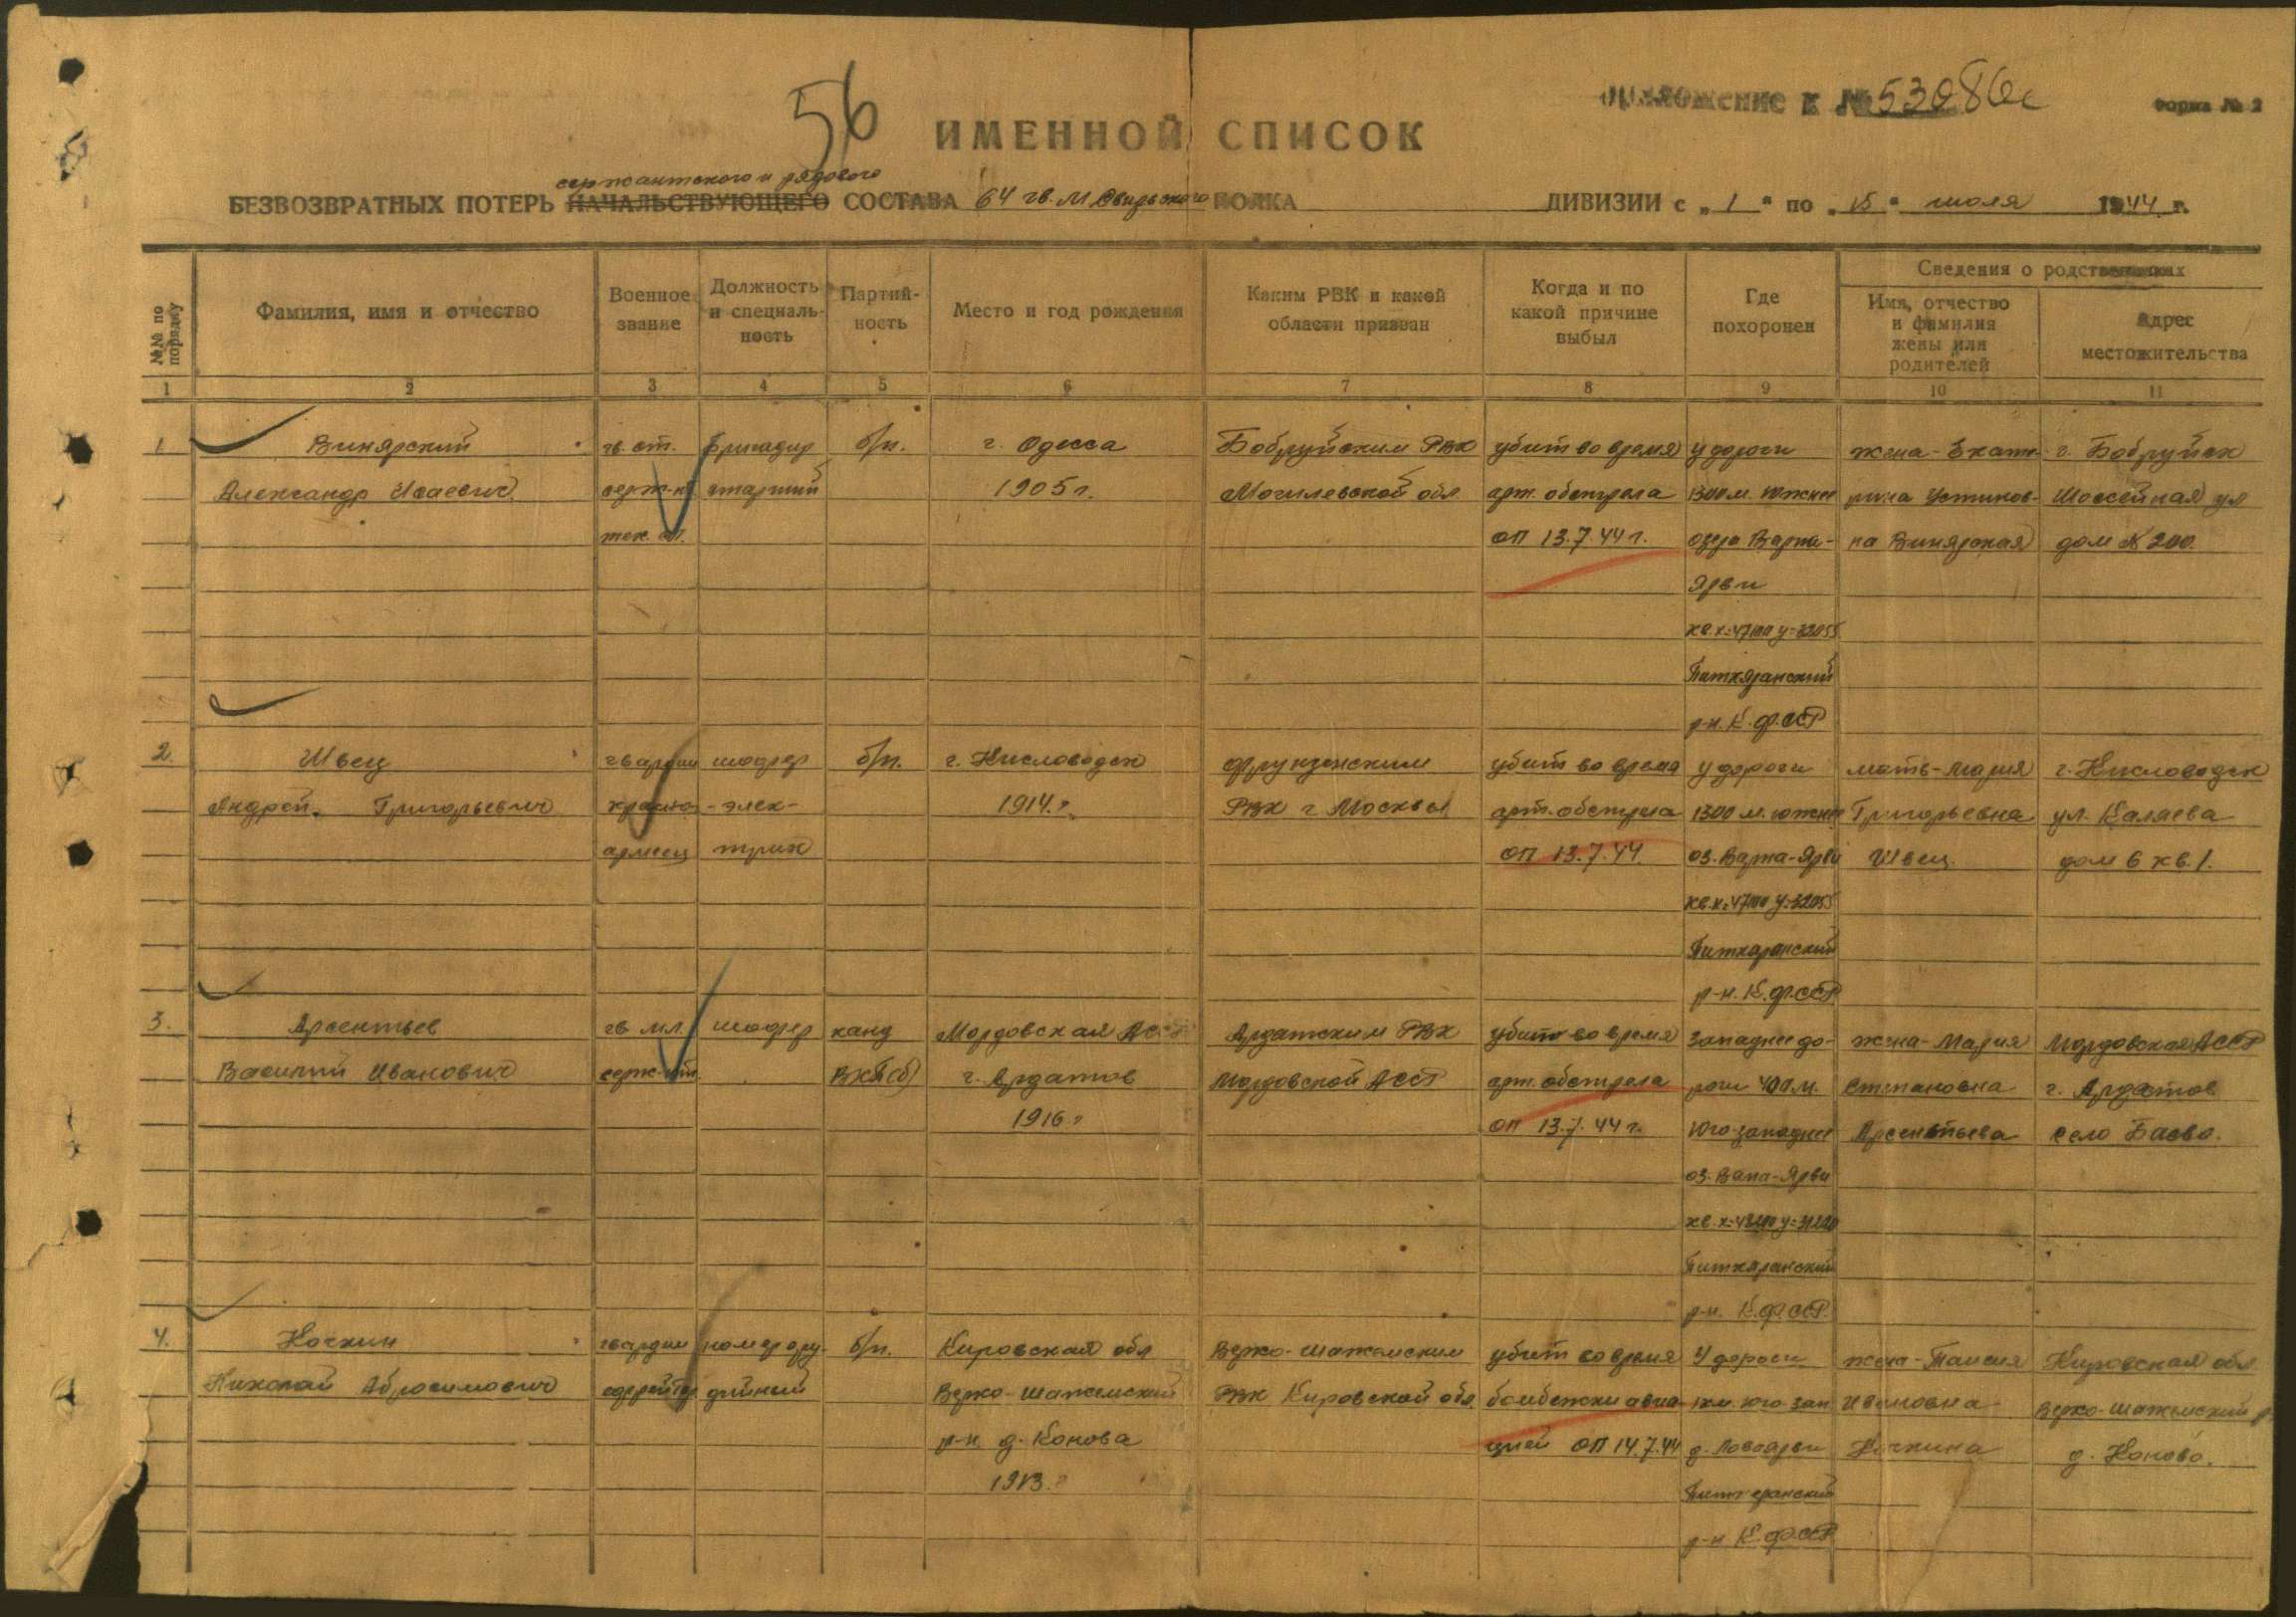 56
приложение к № 53086с
Форма № 2
ИМЕННОЙ СПИСОК
сержантского и рядового
БЕЗВОЗВРАТНЫХ ПОТЕРЬ НАЧАЛЬСТВУЮЩЕГО СОСТАВА 64 гв. М Свирьского ПОЛКА ДИВИЗИИ с „1" по „15" июля 1944 г.
№№ по порядку
Фамилия, имя и отчество
Военное звание
Должность и специаль-ность
Партий-ность
Место и год рождения
Каким РВК и какой области призван
Когда и по какой причине выбыл
Где похоронен
Сведения о родственниках
Имя, отчество и фамилия жены или родителей
Адрес местожительства
1 2 3 4 5 6 7 8 9 10 11
1 Винярский гв. ст. бригадир б/п. г. Одесса Бобруйским РВК убит во время у дороги жена - Екате- г. Бобруйск
Александр Исаевич серж-нт старший 1905 г. Могилевской обл арт. обстрела 1300 м. южнее рина Устинов- Шоссейная ул
тех. сл. ОП 13.7.44 г. озера Варпа- на Винярская дом № 200.
Ярви
кв. х=47100 у=32055
Питкяранский
р-н. К.Ф.ССР
2 Швец гвардии шофер б/п. г. Кисловодск Фрунзенским убит во время у дороги мать - Мария г. Кисловодск
Андрей Григорьевич красно- -элек- 1914 г. РВК г Москвы арт. обстрела 1300 м. южнее Григорьевна ул. Каляева
армеец трик ОП 13.7.44. оз. Варпа-Ярви Швец дом 6 кв. 1.
кв. х=47100 у=32055
Питкяранский
р-н. К.Ф.ССР
3. Арсентьев гв мл. шофер канд Мордовская АССР Ардатским РВК убит во время западнее до- жена - Мария Мордовская АССР
Василий Иванович серж-нт ВКП(б) г. Ардатов Мордовской АССР арт. обстрела роги 400 м. Степановна г. Ардатов
1916 г ОП 13.7.44 г. юго-западнее Арсентьева село Баево.
оз. Вапа-Ярви
кв. х=48200
Питкяранский
р-н. К.Ф.ССР.
4. Кочкин гвардии номер ору- б/п. Кировская обл Верхо-шижемским убит во время У дороги жена - Таисия Кировская обл
Николай Абросимович ефрейтор дийный Верхо-шижемский РВК Кировской обл. бомбежки авиа- 1 км. юго-зап Ивановна Верхо-шижемский р
р-н. д. Конова цией ОП 14.7.44 д. Ловоярви Кочкина д. Коново.
1913 г
Питкяранский
р-н К.Ф.ССР